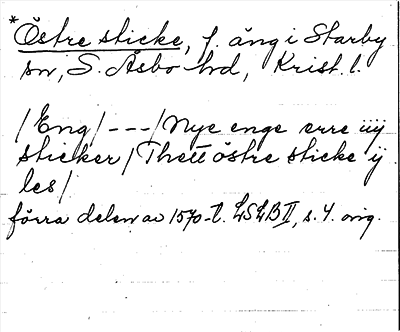 *Östre sticke, f. äng i Starby
sn, S. Åsbo hd, Krist. l.
/Eng/---/Nye enge erre iiij
sticker/Thett östre sticke ij
les/
förra delen av 1570-t. LSLB II, s. 4. orig.